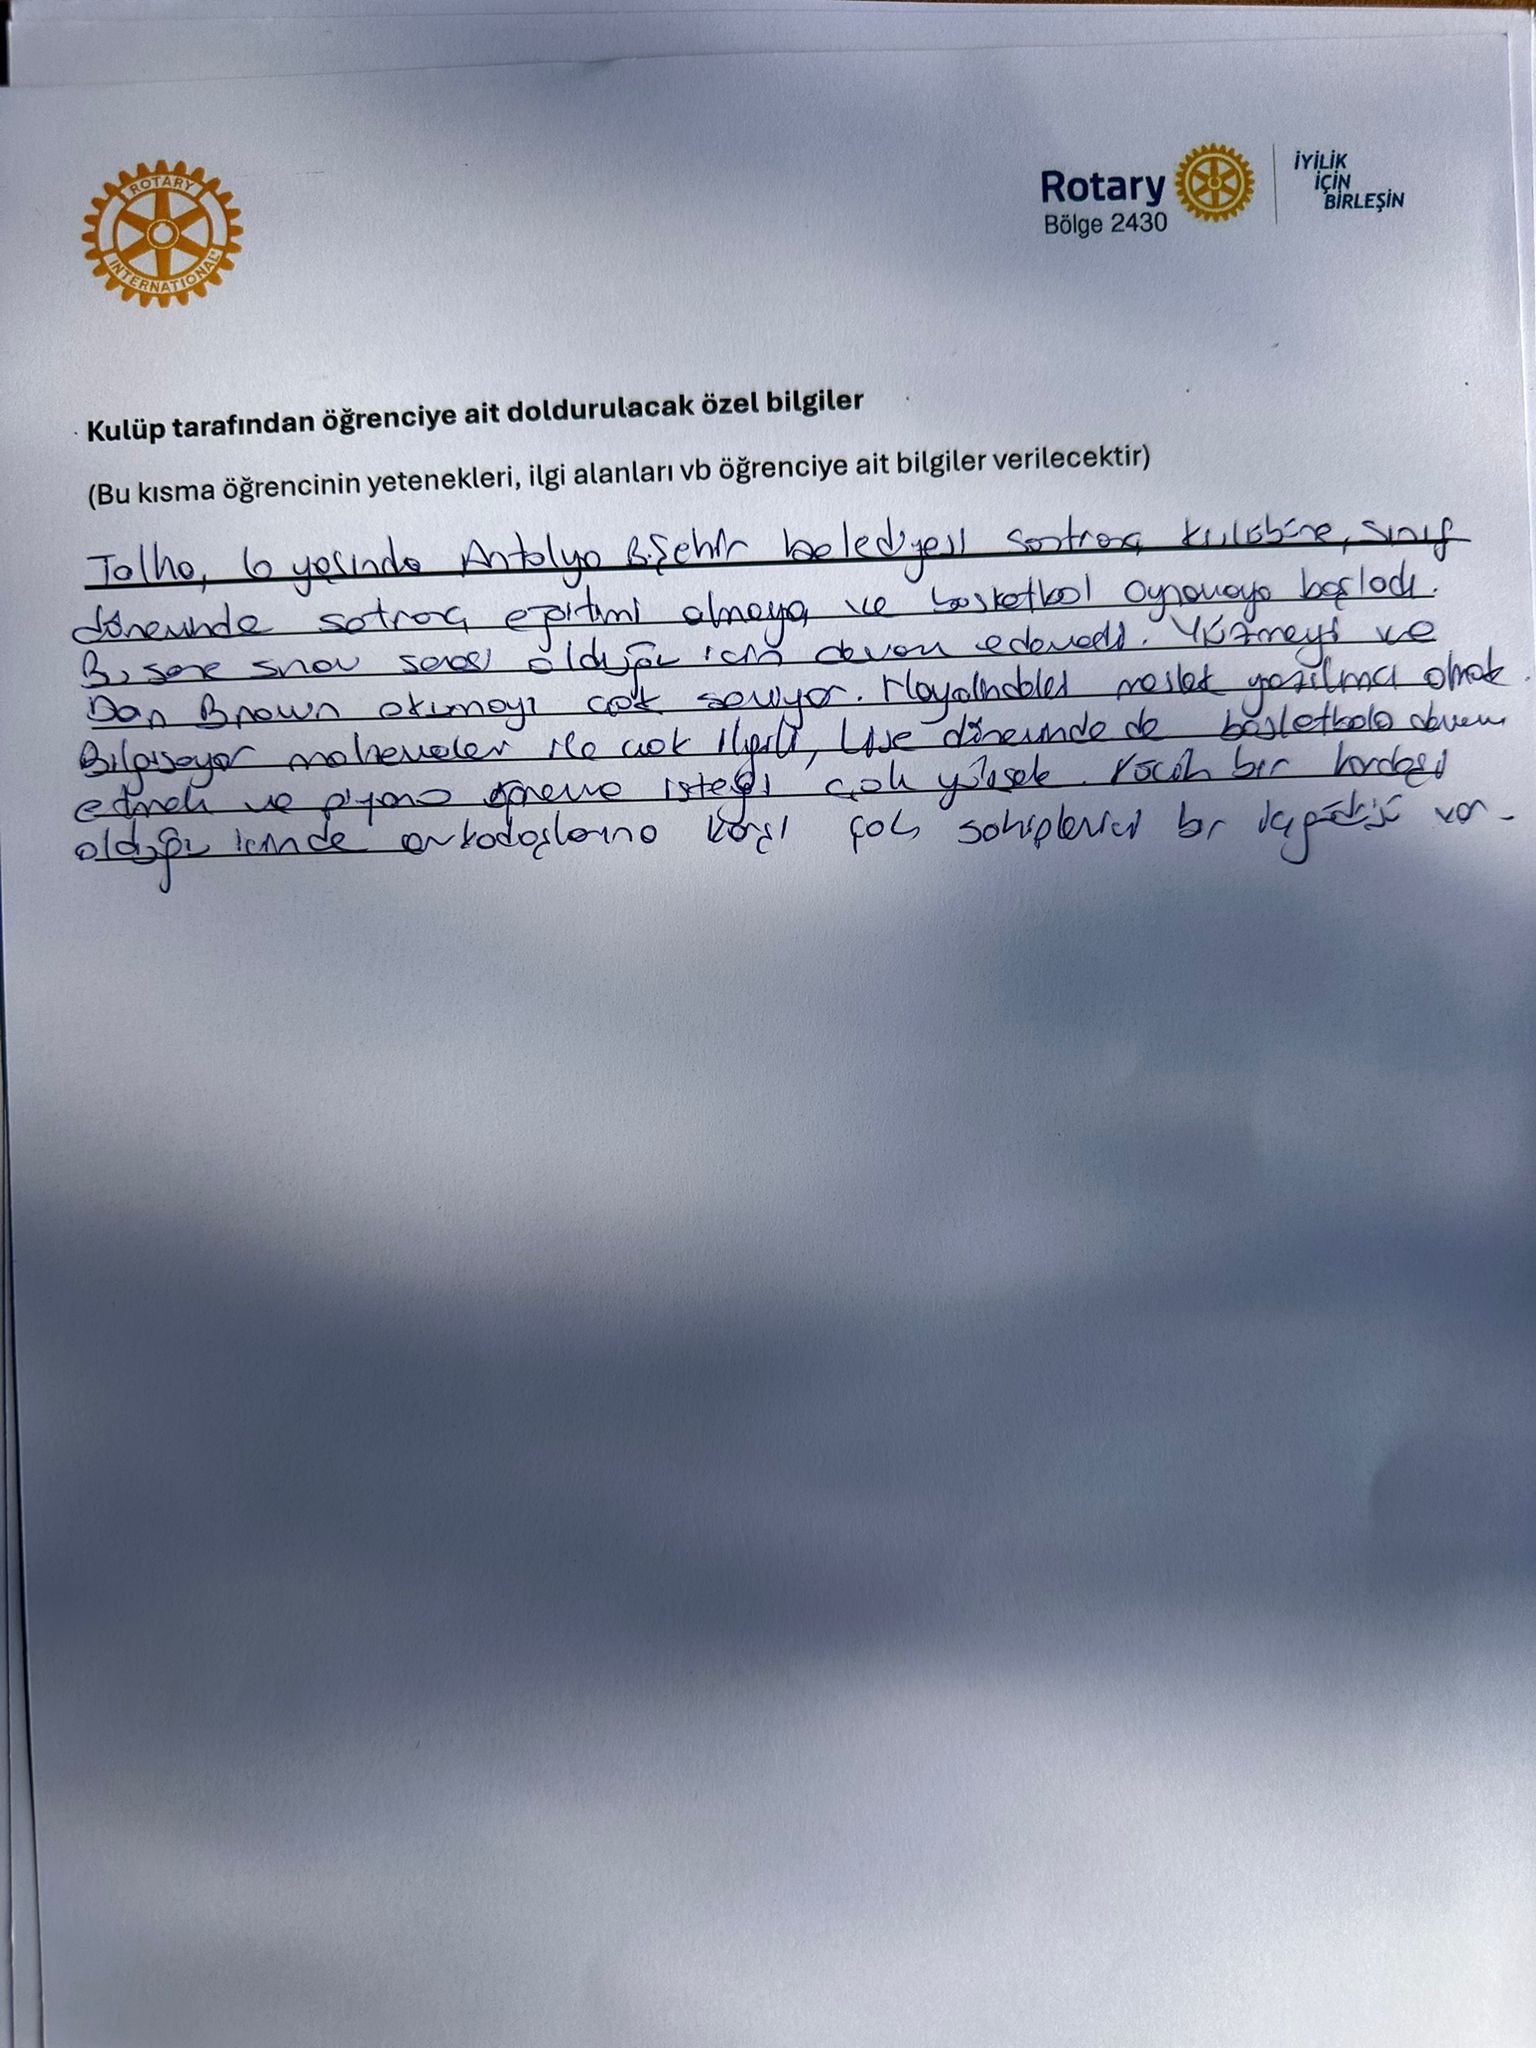 ROTARY
INTERNATIONAL
Rotary
Bölge 2430
İYİLİK
İÇİN
BİRLEŞİN
Kulüp tarafından öğrenciye ait doldurulacak özel bilgiler
(Bu kısma öğrencinin yetenekleri, ilgi alanları vb öğrenciye ait bilgiler verilecektir)
Talha, 6 yaşında Antalya B.Şehir belediyesi santranç kulübüne, sınıf
döneminde satranç eğitimi almaya ve basketbol oynamaya başladı.
Bu sene sınav senesi olduğu için devam edemedi. Yüzmeyi ve
Dan Brown okumayı çok seviyor. Hayalindeki meslek yazılımcı olmak.
Bilgisayar malzemeler ile çok ilgili, Lise döneminde de basketbola devam
etmek ve piyano öğrenme isteği çok yüksek. Küçük bir kardeşi
olduğu içinde arkadaşlarına karşı çok sahiplenici bir var.